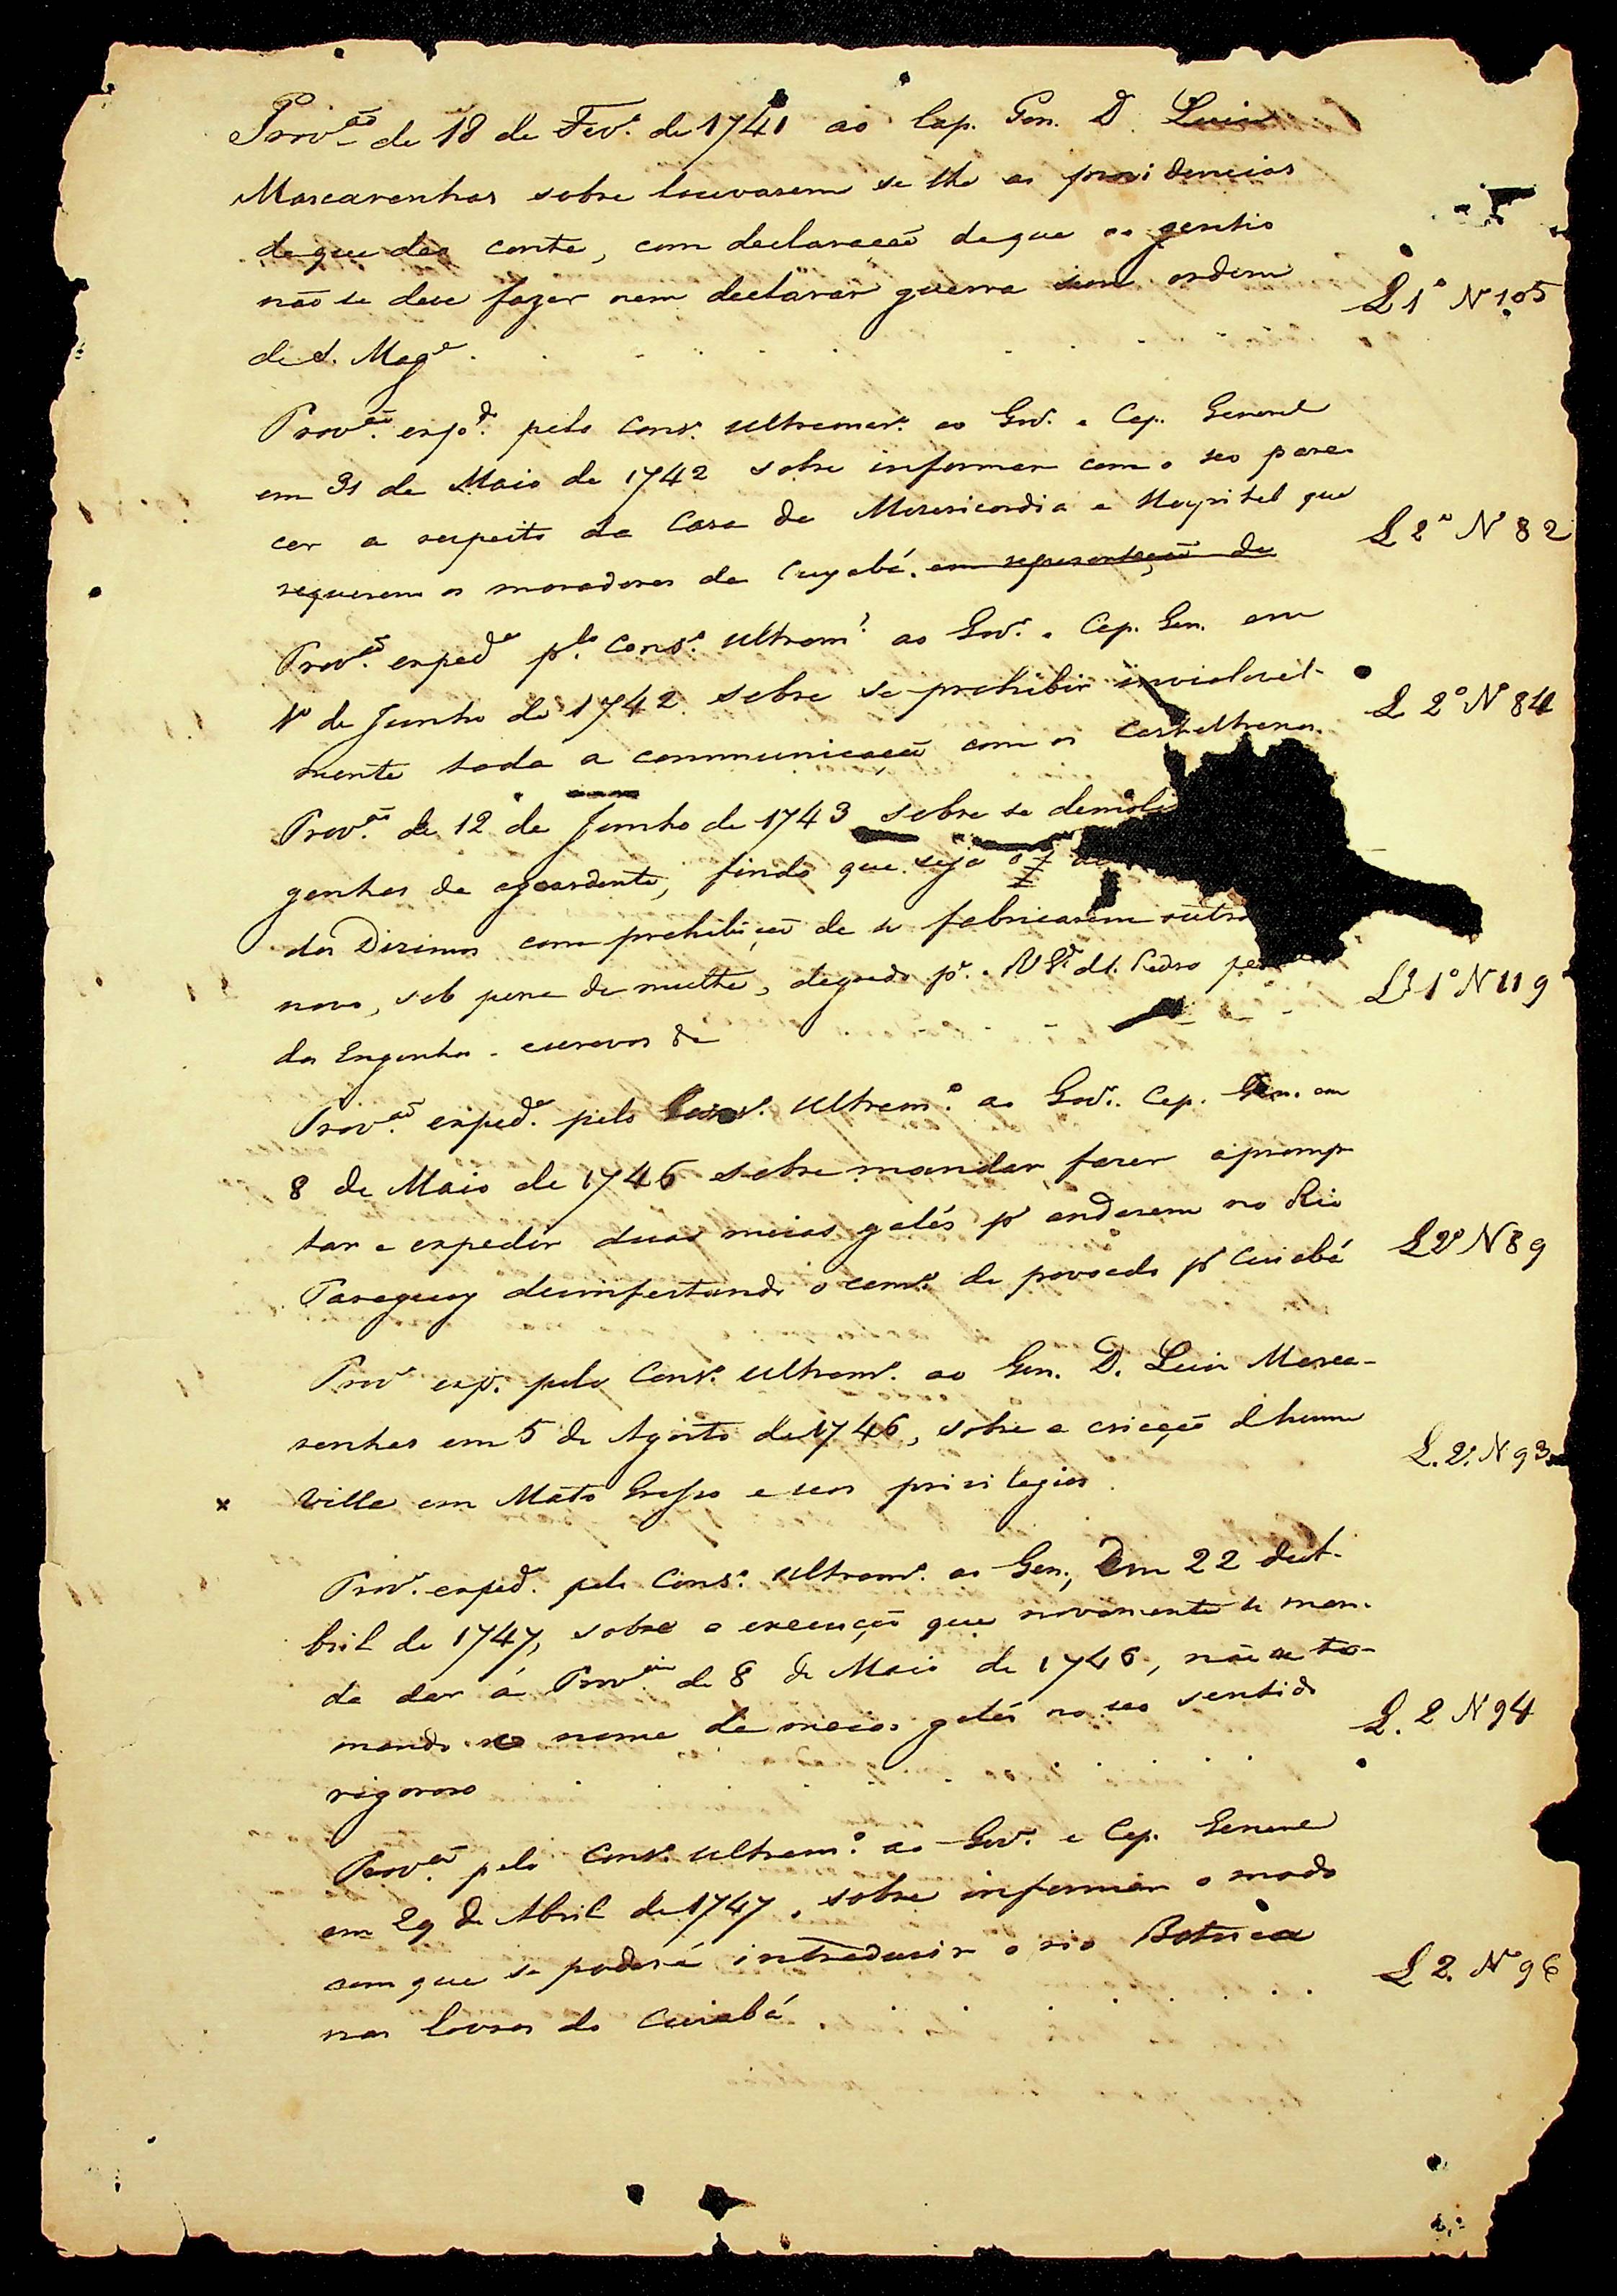 Provão de 18 de Fevº. de 1741 ao Cap. Gen. D. Luis
Mascarenhas sobre louvarem se lhe as providencias
de que deo conta, com declaração de que ao gentio
não se deve fazer nem declarar guerra sem ordem L 1º Nº 105
de S. Mage.
Provão. expda. pelo Conso. Ultramar. ao Govr. e Cap. General
em 31 de Maio de 1742 sobre informar com o seo pare-
cer a respeito da Casa de Misericordia e Hospital que L 2º Nº 82
requerem os moradores de Cuyabá. em representação de
Provão. expeda plo. Conso. Ultramo. ao Govr. e Cap. Gen. em
1º de Junho de 1742 sobre se prohibir inviolavel- L 2º Nº 84
mente toda a communicação com os Castelhanos.
Provão. de 12 de Junho de 1743 sobre se demoli
genhos de agoardente, findo que seja o
dos Dizimos com prohibição de se fabricarem outro
novo, sob pena de multa, degredo pa. a N Ca. de S. Pedro L 1º Nº 119
dos Engenhos e escravos &
Provão. expeda. pelo Conso. Ultramo. ao Govr. Cap. Gen. em
8 de Maio de 1746 sobre mandar fazer apromp-
tar e expedir duas meias galés pa andarem no Rio L 2º Nº 89
Paraguay desinfestando o camo. de povoado pa Cuiabá
Prov exp. pelo Conso. Ultramo. ao Gen. D. Luis Masca-
renhas em 5 de Agosto de 1746, sobre a criação d'huma L. 2º. Nº 93
x Villa em Mato Grosso e seos privilegios.
Prov. expeda. pelo Conso. Ultramo. ao Gen., em 22 de A-
bril de 1747, sobre a execução que novamente se man-
da dar á Provão de 8 de Maio de 1746, não se to-
mando o nome de meias galés no seo sentido L. 2 Nº 94
rigoroso
Provão. pelo Conso. Ultramo. ao Govr. e Cap. General
em 29 de Abril de 1747, sobre informar o modo
com que se poderá introdusir o rio Botuca L 2. Nº 96
nas lavras do Cuiabá